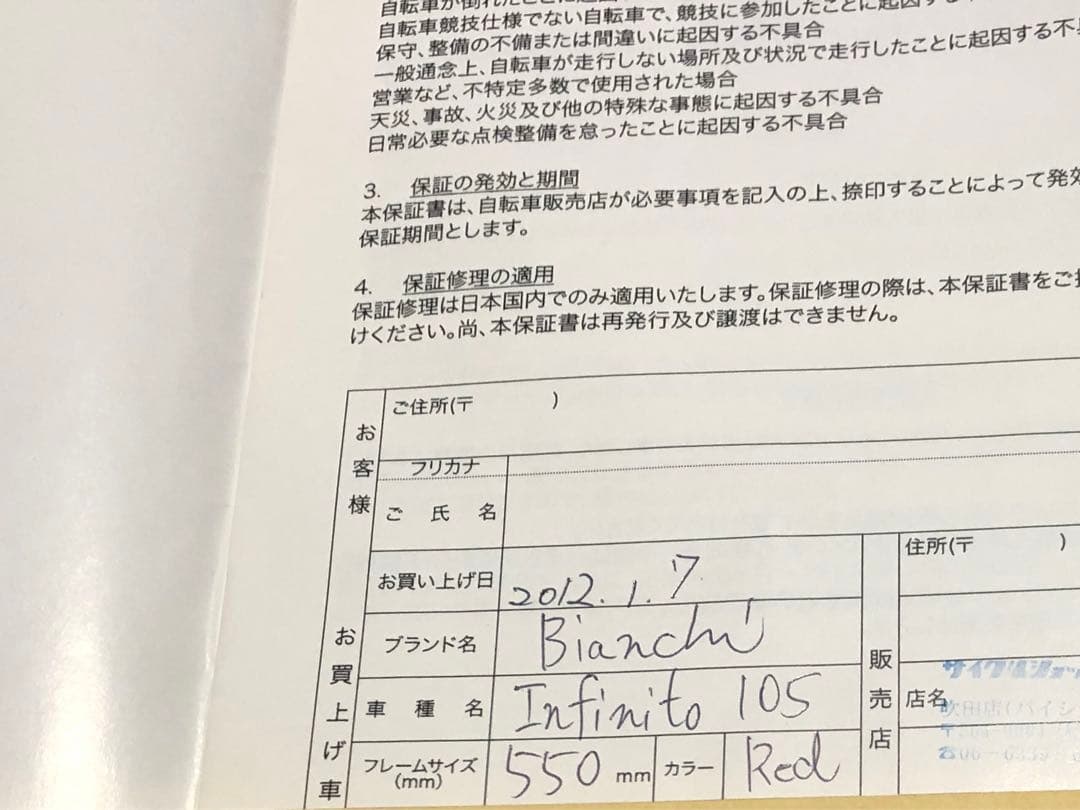 自転車が倒れたことに起因
自転車競技仕様でない自転車で、競技に参加したことに起因する不
保守、整備の不備または間違いに起因する不具合
一般通念上、自転車が走行しない場所及び状況で走行したことに起因する不具
営業など、不特定多数で使用された場合
天災、事故、火災及び他の特殊な事態に起因する不具合
日常必要な点検整備を怠ったことに起因する不具合
3. 保証の発効と期間
本保証書は、自転車販売店が必要事項を記入の上、捺印することによって発効
保証期間とします。
4. 保証修理の適用
保証修理は日本国内でのみ適用いたします。保証修理の際は、本保証書をご提
けください。尚、本保証書は再発行及び譲渡はできません。
お客様
ご住所(〒 )
フリカナ
ご氏名
お買い上げ日 2012.1.7
お買上げ車
ブランド名 Bianchi
車種名 Infinito 105
フレームサイズ(mm) 550 mm カラー Red
販売店
住所(〒 )
店名
サイクルショッ
吹田店(バイシ